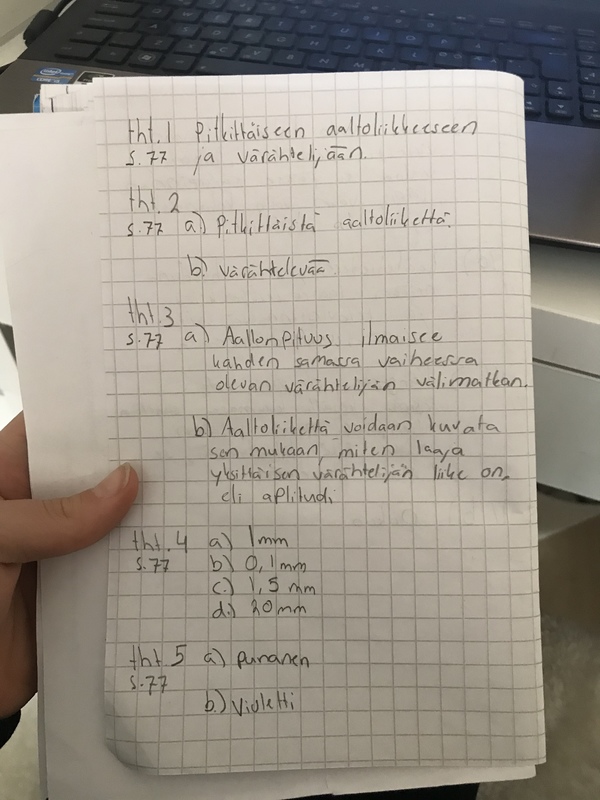 tht.1 Pitkittäiseen aaltoliikkeeseen
s.77 ja värähtelijään.
tht.2
s.77 a.) Pitkittäistä aaltoliikettä.
b.) värähtelevää
tht.3
s.77 a) Aallonpituus ilmaisee
kahden samassa vaiheessa
olevan värähtelijän välimatkan.
b) Aaltoliikettä voidaan kuvata
sen mukaan, miten laaja
yksittäisen värähtelijän liike on,
eli aplitudi
tht.4 a) 1mm
s.77 b) 0,1mm
c.) 1,5 mm
d.) 20mm
tht.5 a) punanen
s.77
b.) violetti